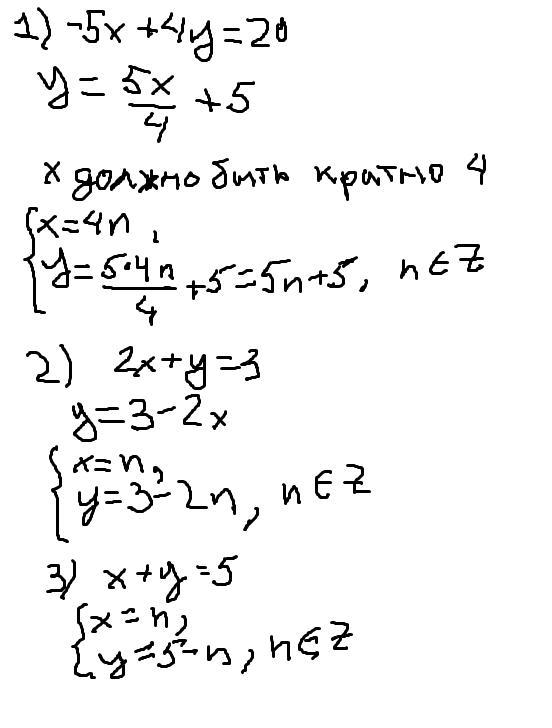 1) -5x+4y=20
y= 5x/4 +5
x должно бить кратно 4
{x=4n,
{y= 5·4n/4 +5=5n+5, n∈Z
2) 2x+y=3
y=3-2x
{x=n,
{y=3-2n, n∈Z
3) x+y=5
{x=n,
{y=5-n, n∈Z